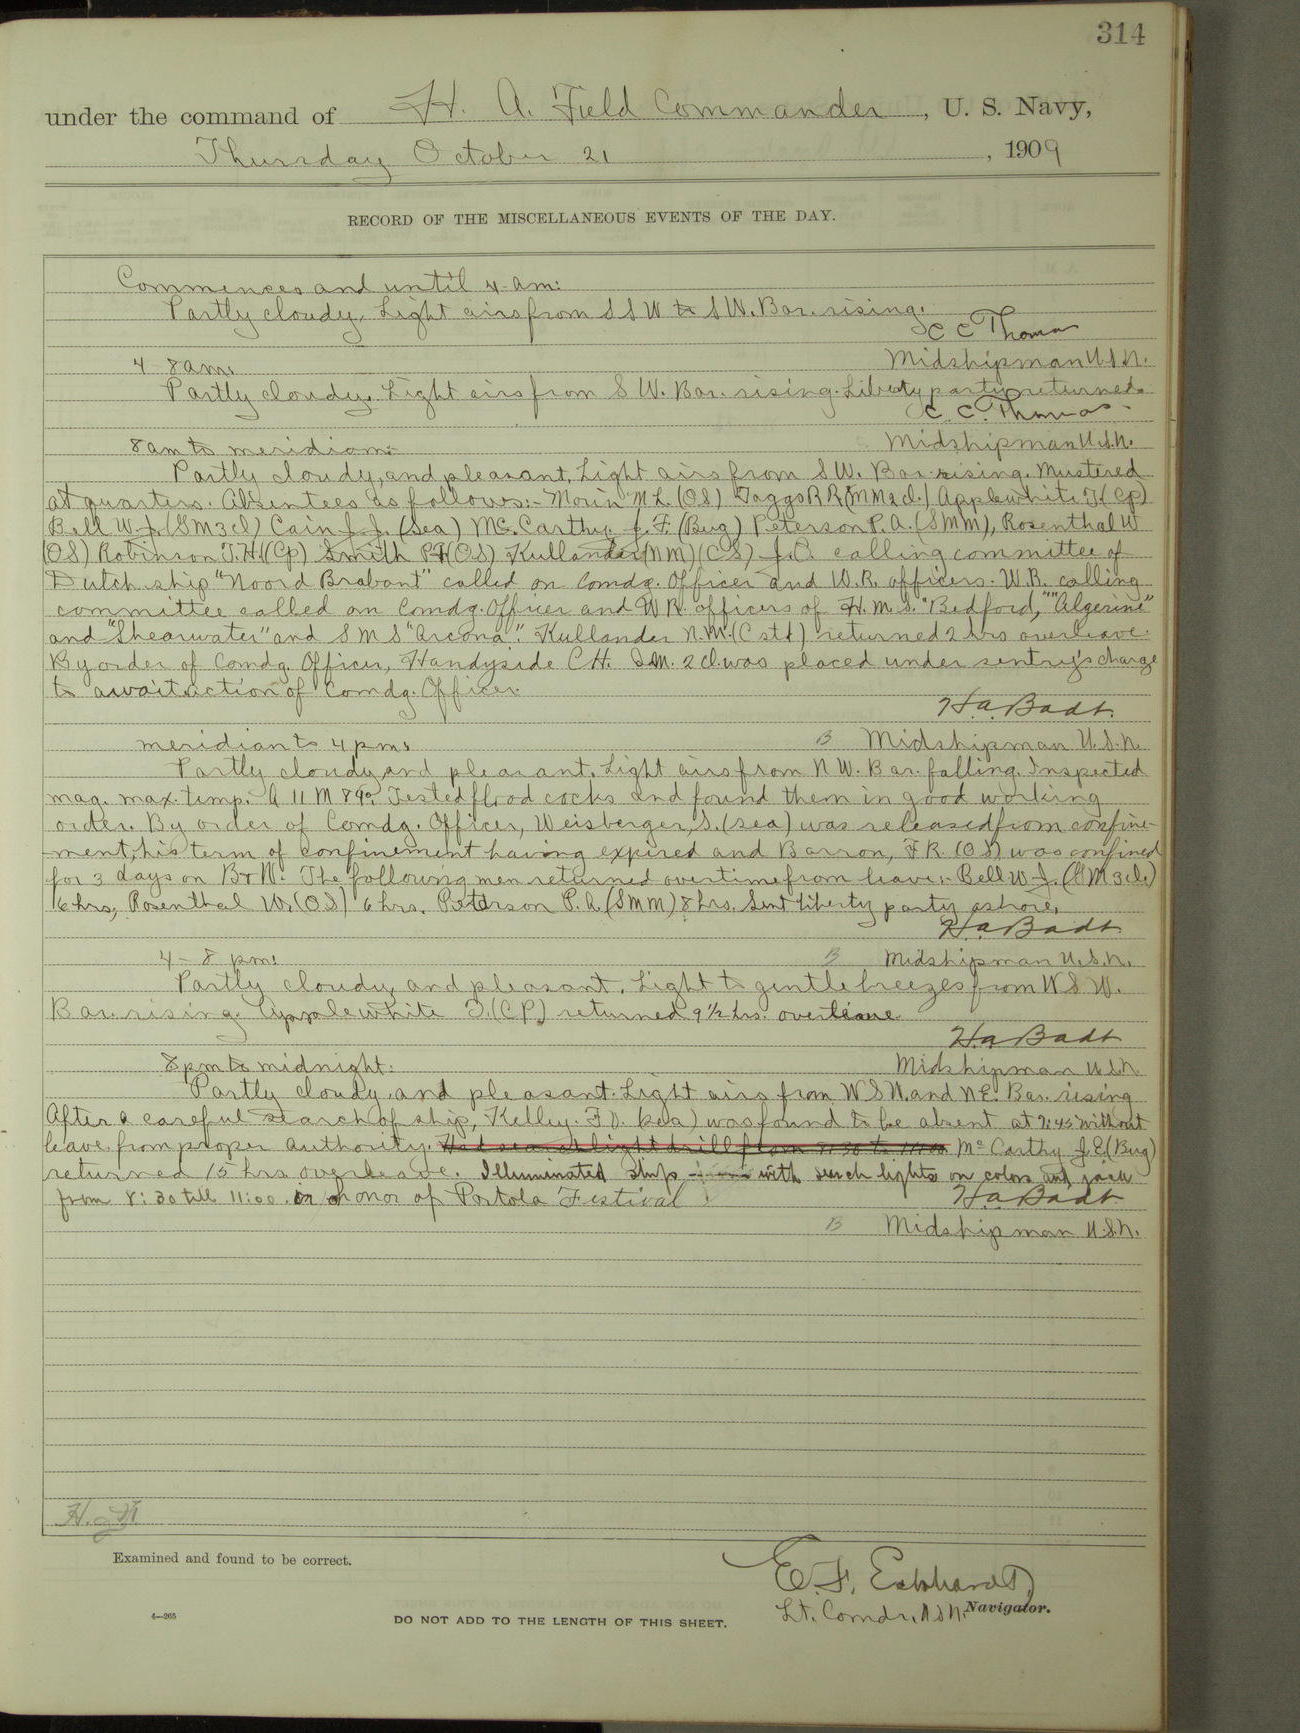 314
under the command of H. A. Field Commander, U. S. Navy,
Thursday October 21, 1909
RECORD OF THE MISCELLANEOUS EVENTS OF THE DAY.
Commences and until 4 am:
Partly cloudy. Light airs from SSW to SW. Bar. rising.
C C Thomas
4 - 8 am:
Midshipman U.S.N.
Partly cloudy. Light airs from S W. Bar. rising. Liberty party returned.
C. C. Thomas
8 am to meridian:
Midshipman U.S.N.
Partly cloudy, and pleasant. Light airs from SW. Bar. rising. Mustered
at quarters. Absentees as follows:- M.L. (OS) Taggs RR (MM 2 cl.) Applewhite T. (CP)
Bell W J. (GM 3 cl) Cain J. J. (Sea) McCarthy J. F. (Bug) Peterson P. A. (SMM), Rosenthal W
(OS) Robinson T.H. (Cp) Smith (OS) Kullander (NM) (CS) J.O. calling committee of
Dutch ship "Noord Brabant" called on Comdg. Officer and W.R. officers. W.R. calling
committee called on Comdg. Officer and W R. officers of H.M.S. "Bedford," "Algerine"
and "Shearwater" and S M S "Arcona". Kullander N.M. (C st) returned 2 hrs overleave.
By order of Comdg. Officer, Handyside C H. 2 cl. was placed under sentry's charge
to await action of Comdg. Officer.
H. a. Badt.
meridian to 4 pm:
B Midshipman U.S.N.
Partly cloudy and pleasant. Light airs from N W. Bar. falling. Inspected
mag. max. temp. A 11 M 89°. Tested flood cocks and found them in good working
order. By order of Comdg. Officer, Weisberger, S. (sea) was released from confine-
ment, his term of confinement having expired and Barron, F R. (OS) was confined
for 3 days on B + W. The following men returned overtime from leave: Bell W J. (GM 3 cl.)
6 hrs, Rosenthal W. (OS) 6 hrs. Peterson P. A. (SMM) 8 hrs. Sent liberty party ashore.
H. a. Badt
4 - 8 pm:
B Midshipman U.S.N.
Partly cloudy and pleasant. Light to gentle breezes from W S W.
Bar. rising. Applewhite T. (CP) returned 9 1/2 hrs. overtime
H. a Badt
8 pm to midnight:
Midshipman U.S.N.
Partly cloudy, and pleasant. Light airs from WSW. and NE. Bar. rising
After a careful search of ship, Kelley. F D. (sea) was found to be absent at 9:45 without
leave from proper authority. Had search light drill from 8:30 to 11:00 McCarthy J. E (Bug)
returned 15 hrs overleave. Illuminated ship with search lights on colors and jack
from 8:30 till 11:00 in honor of Portola Festival.
H. a. Badt
B Midshipman U.S.N.
Examined and found to be correct.
E. F. Eckhardt,
Lt. Comdr. U S N. Navigator.
4—265
DO NOT ADD TO THE LENGTH OF THIS SHEET.